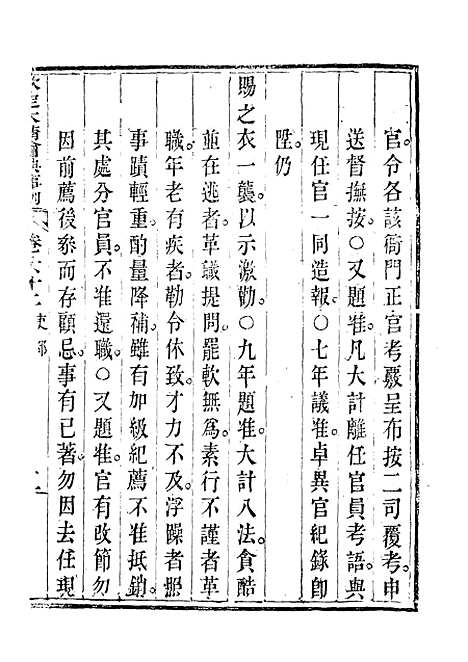 官。令各該衙門正官考覈呈布按二司覆考。申
送督撫按。○又題准。凡大計離任官員考語。與
現任官一同造報。○七年議准。卓異官紀錄卽
陞。仍
賜之衣一襲。以示激勸。○九年題准。大計八法。貪酷
並在逃者革職提問。罷軟無爲。素行不謹者革
職。年老有疾者。勒令休致。才力不及。浮躁者。照
事蹟輕重。酌量降補。雖有加級紀薦。不准抵銷。
其處分官員。不准還職。○又題准。官有改節。勿
因前薦後參而存顧忌。事有已著。勿因去任現
欽定大清會典事例 卷六十二 吏部